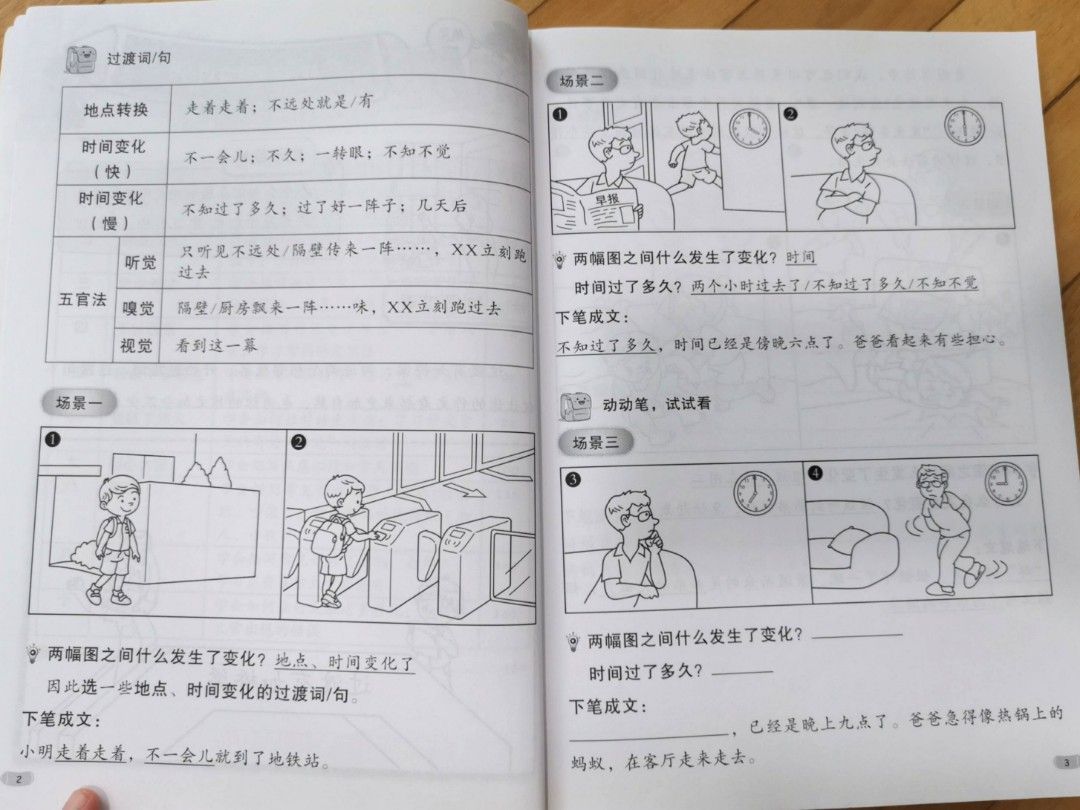 过渡词/句
地点转换
走着走着；不远处就是/有
时间变化
（快）
不一会儿；不久；一转眼；不知不觉
时间变化
（慢）
不知过了多久；过了好一阵子；几天后
五官法
听觉
只听见不远处/隔壁传来一阵……，XX立刻跑
过去
嗅觉
隔壁/厨房飘来一阵……味，XX立刻跑过去
视觉
看到这一幕
场景一
1
2
两幅图之间什么发生了变化？地点、时间变化了
因此选一些地点、时间变化的过渡词/句。
下笔成文：
小明走着走着，不一会儿就到了地铁站。
2
场景二
1
早报
2
两幅图之间什么发生了变化？时间
时间过了多久？两个小时过去了/不知过了多久/不知不觉
下笔成文：
不知过了多久，时间已经是傍晚六点了。爸爸看起来有些担心。
动动笔，试试看
场景三
3
4
两幅图之间什么发生了变化？
时间过了多久？
下笔成文：
，已经是晚上九点了。爸爸急得像热锅上的
蚂蚁，在客厅走来走去。
3